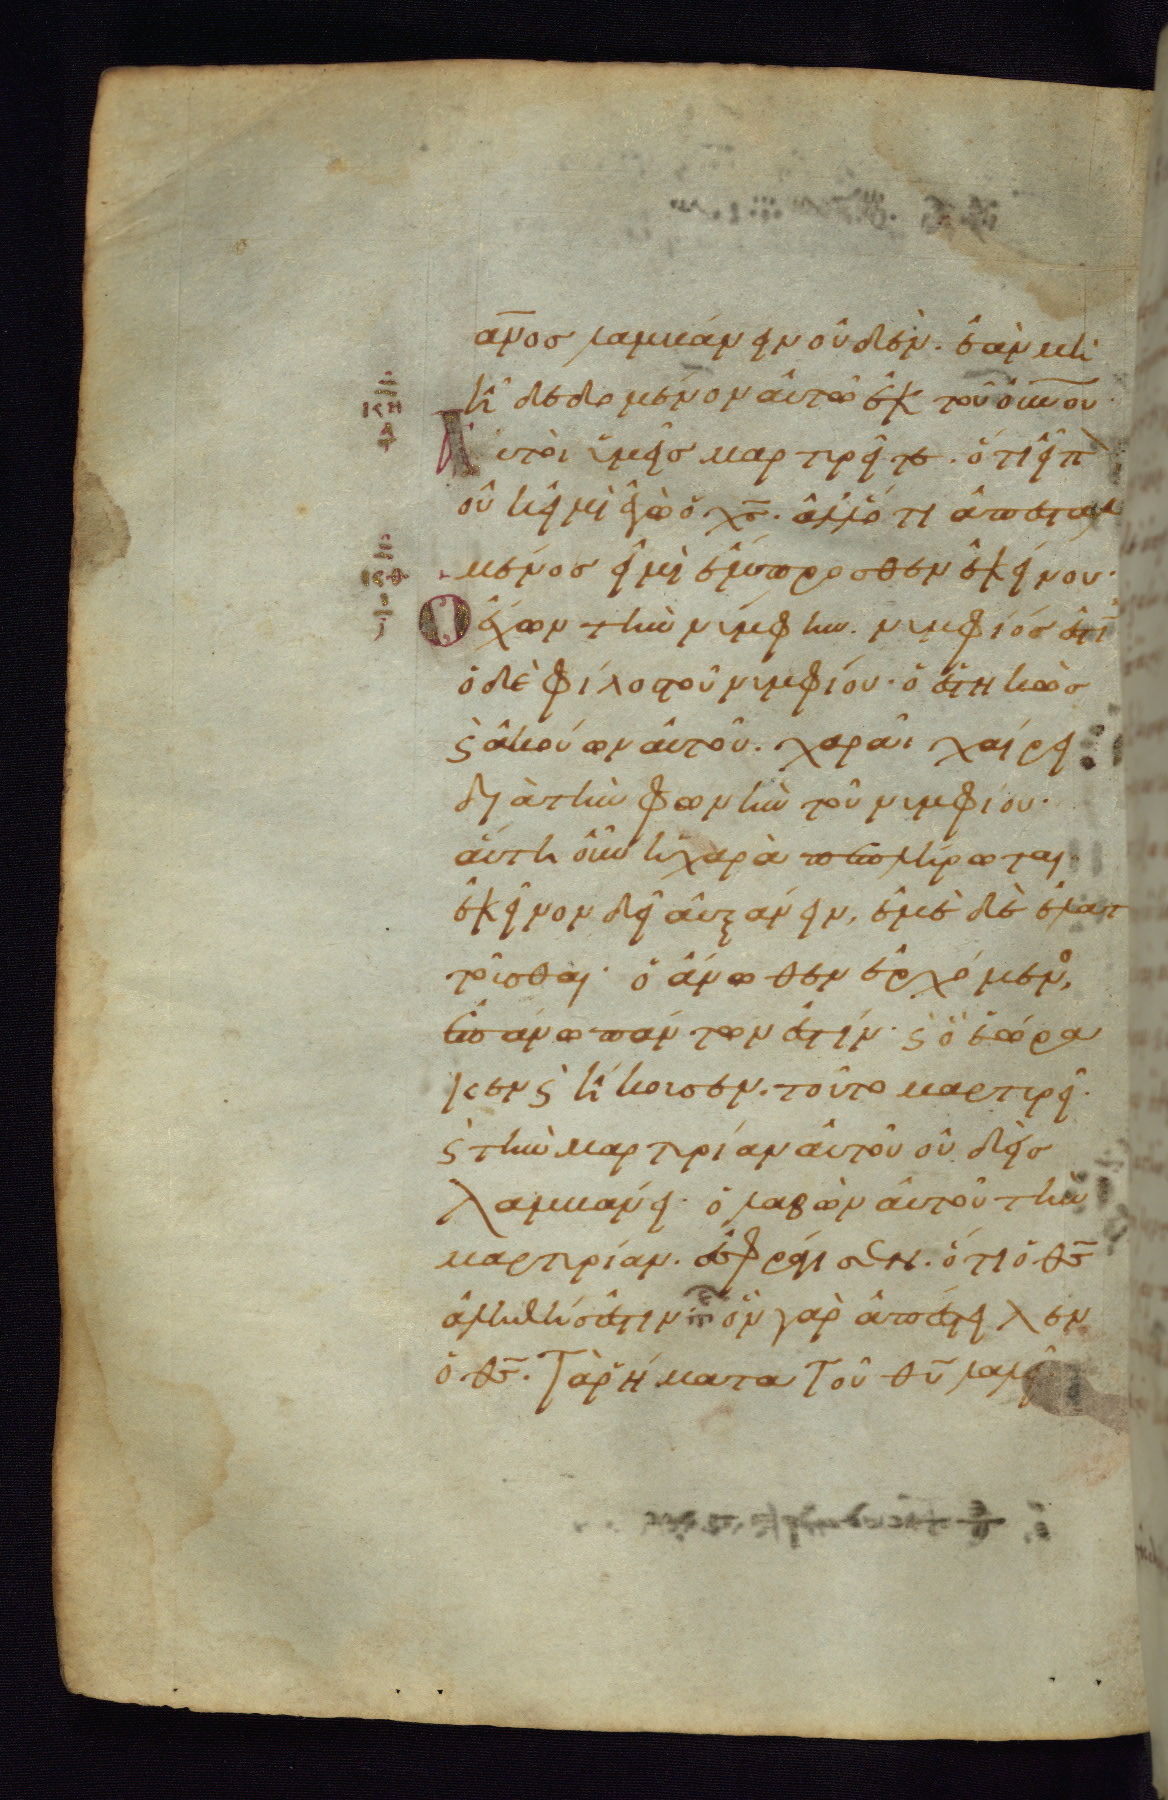 ᾱνος λαμβάνειν οὐδέν· ἐὰν μὴ
ἦ δεδομένον αὐτῶ ἐκ τοῦ οὐ̅νου·
κη
Αὐτοὶ ὑμεῖς μαρτυρεῖτε· ὅτι εἶπ
οὐκ εἰμὶ ἐγὼ ὁ χ̅ς· ἀλλ' ὅτι ἀπεσταλ
μένος εἰμὶ ἔμπροσθεν ἐκείνου·
κθ
Ὁ ἔχων τὴν νύμφην· νυμφίος ἐστί
ὁ δὲ φίλος τοῦ νυμφίου· ὁ ἑστηκὼς
ϛ ἀκούων αὐτοῦ· χαρᾶι χαίρει
διὰ τὴν φωνὴν τοῦ νυμφίου·
αὕτη οὖν ἡ χαρὰ πεπλήρωται·
ἐκεῖνον δεῖ αὐξάνειν, ἐμὲ δὲ ἐλατ
τοῦσθαι· ὁ ἄνωθεν ἐρχόμενος,
ἐπάνω πάντων ἐστίν· ϛ ὃ ἑώρα
κεν ϛ ἤκουσεν· τοῦτο μαρτυρεῖ·
ϛ τὴν μαρτυρίαν αὐτοῦ οὐδεὶς
λαμβάνει· ὁ λαβὼν αὐτοῦ τὴν
μαρτυρίαν· ἐσφράγισεν· ὅτι ὁ θ̅ς
ἀληθής ἐστιν· ὃν γὰρ ἀπέστειλεν
ὁ θ̅ς· τὰ ῥήματα τοῦ θ̅υ λαλεῖ